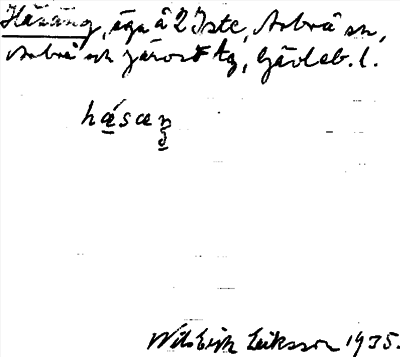 Häsäng, äga å 2 Iste, Arbrå sn,
Arbrå och Järvsö tg, Gävleb. l.
hásaŋ
Nils Erik Eriksson 1935.